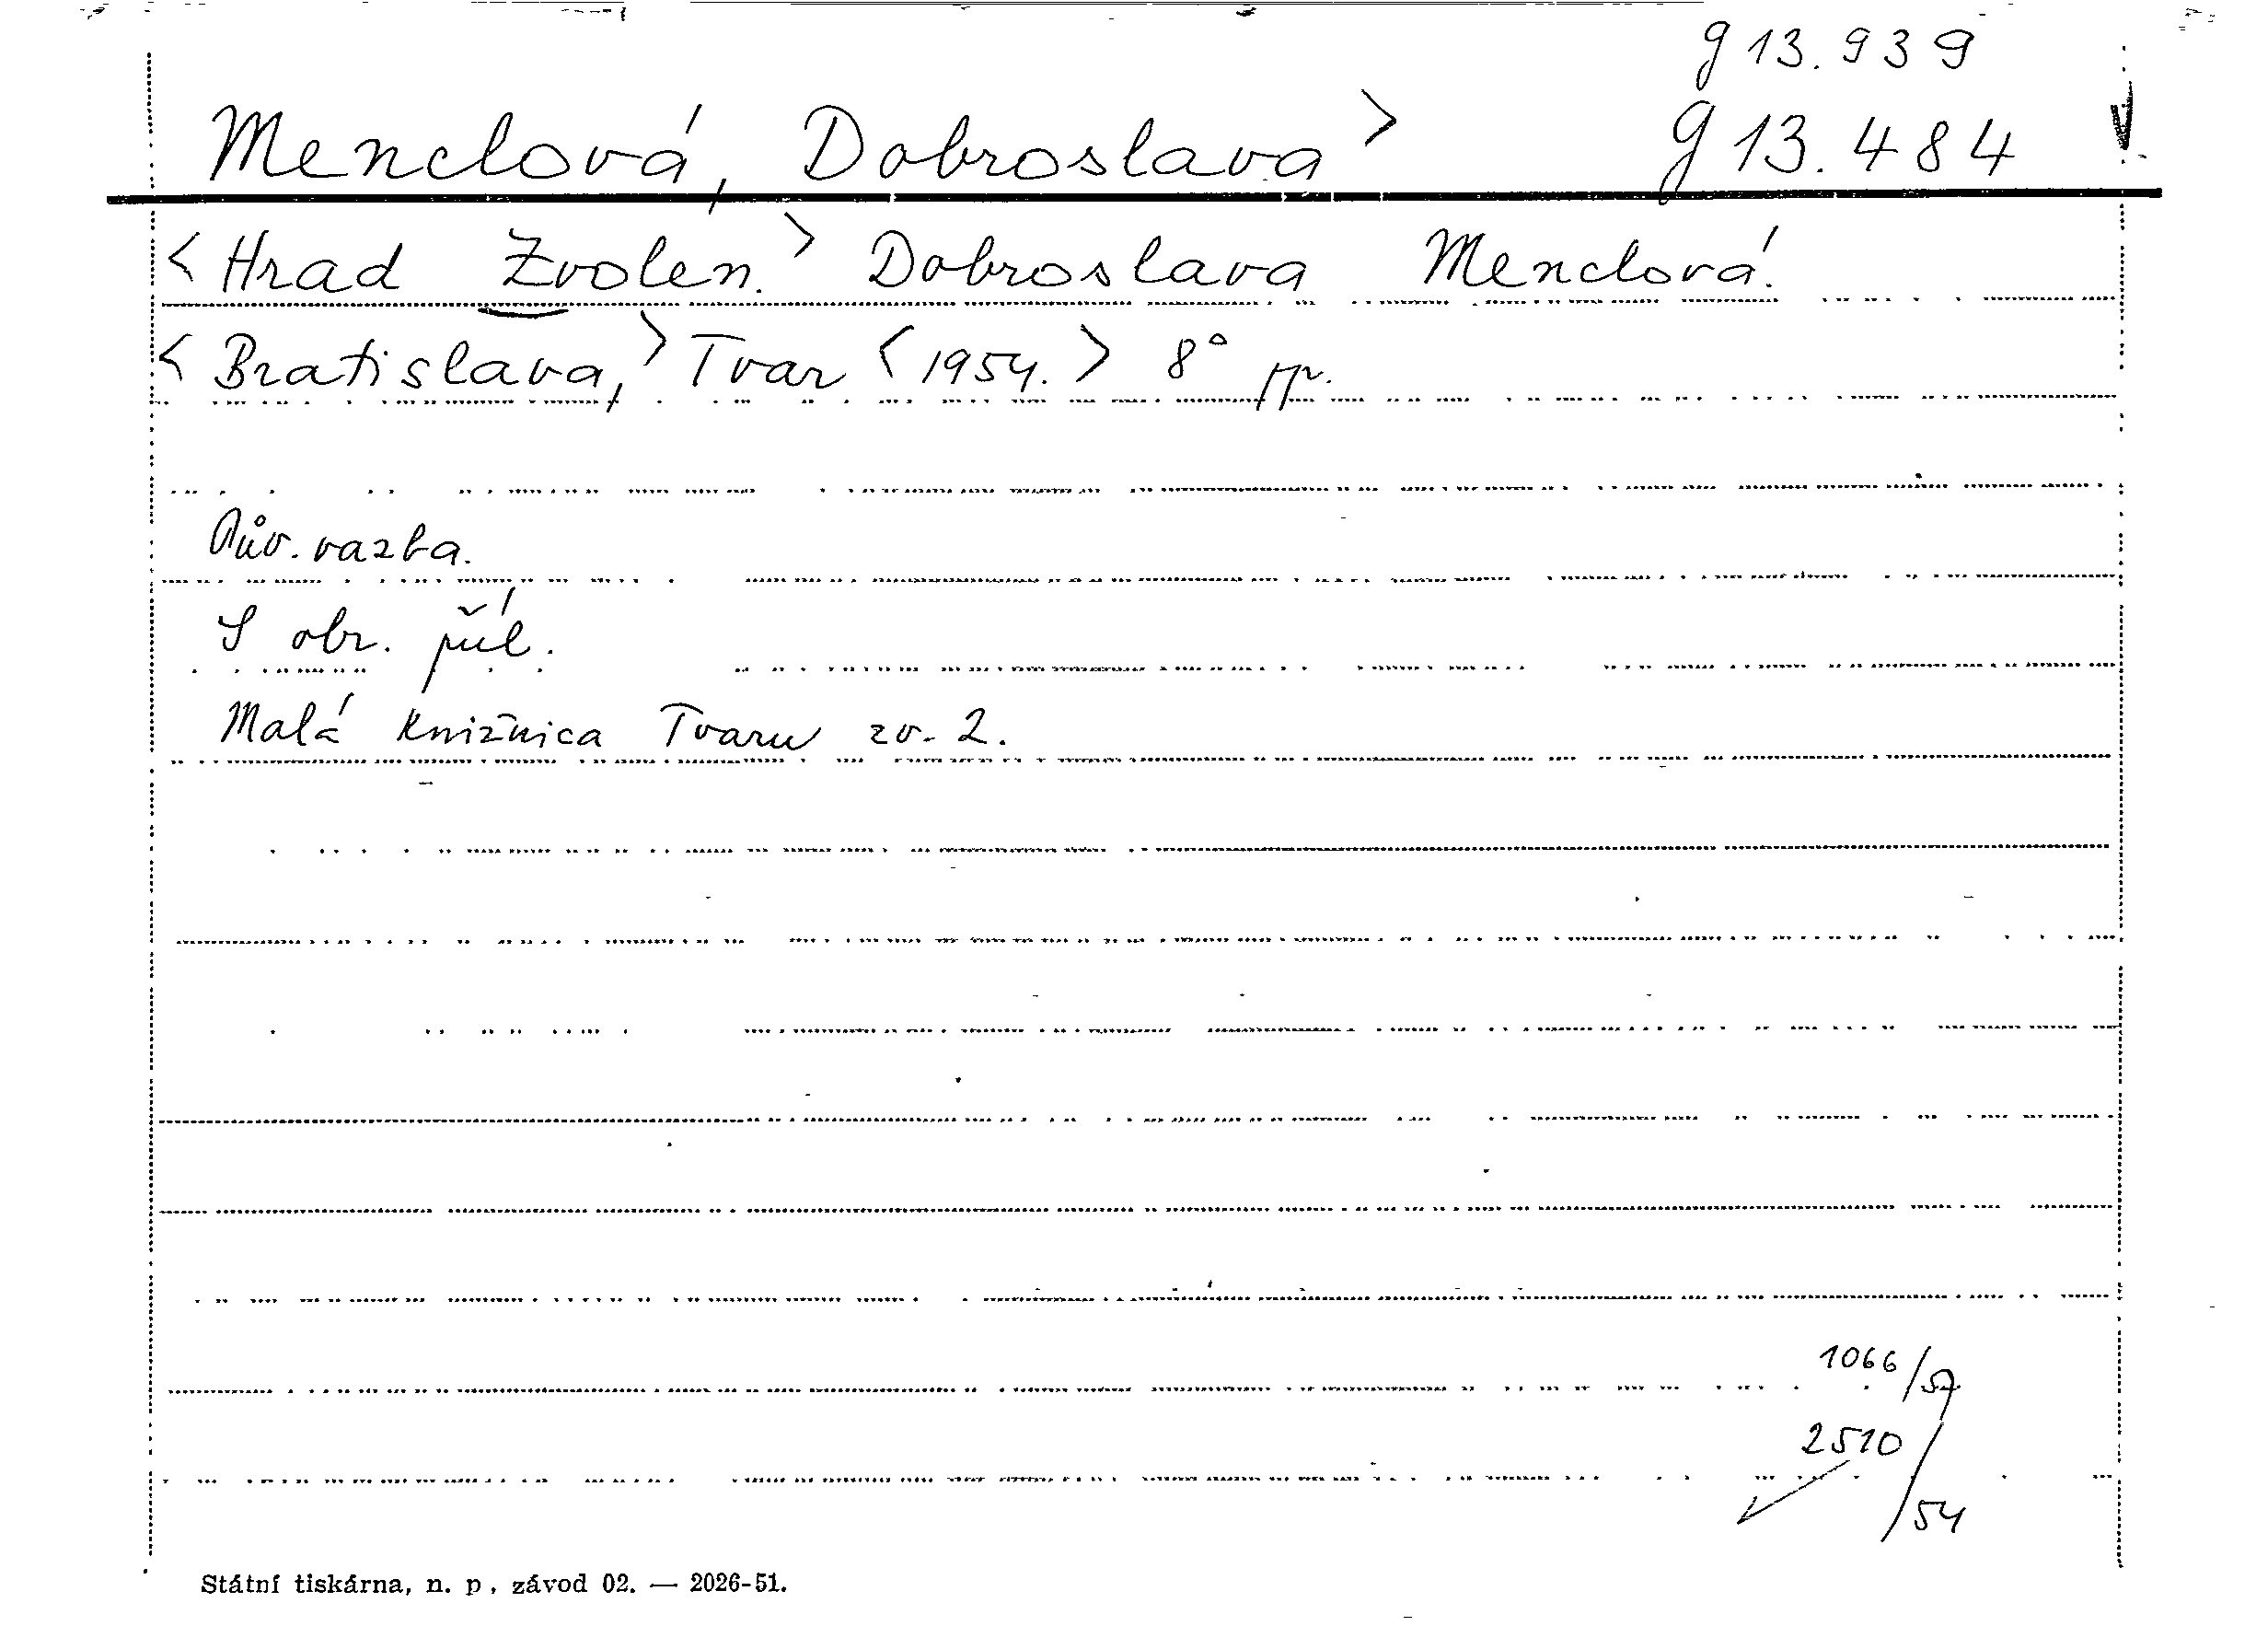 g 13.939
Menclová, Dobroslava > g 13.484
<Hrad Zvolen.> Dobroslava Menclová.
<Bratislava,> Tvar <1954.> 8° pp.
Pův. vazba.
S obr. příl.
Malá knižnica Tvaru zv. 2.
1066/57
2510/54
Státní tiskárna, n. p., závod 02. — 2026-51.